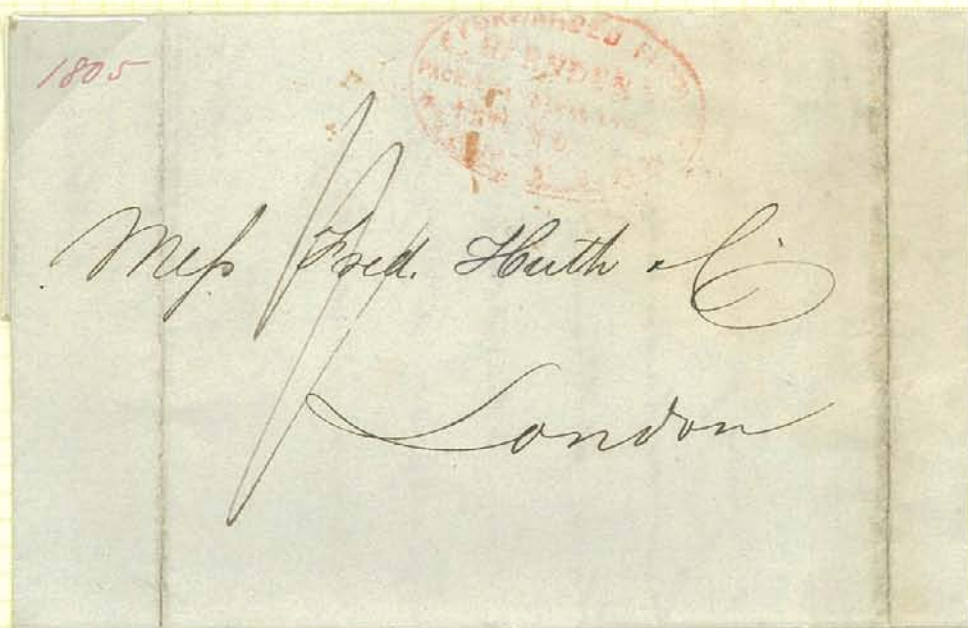 1805
FORWARDED FROM
HARNDEN'S
PACKAGE
Mess Fred. Huth & Co
London